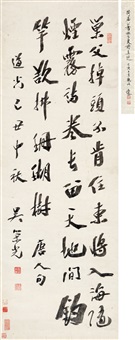 巢父掉頭不肯住東將入海隨
煙霧詩卷長留天地間釣
竿欲拂珊瑚樹 唐人句
道光己丑中秋 吳榮光